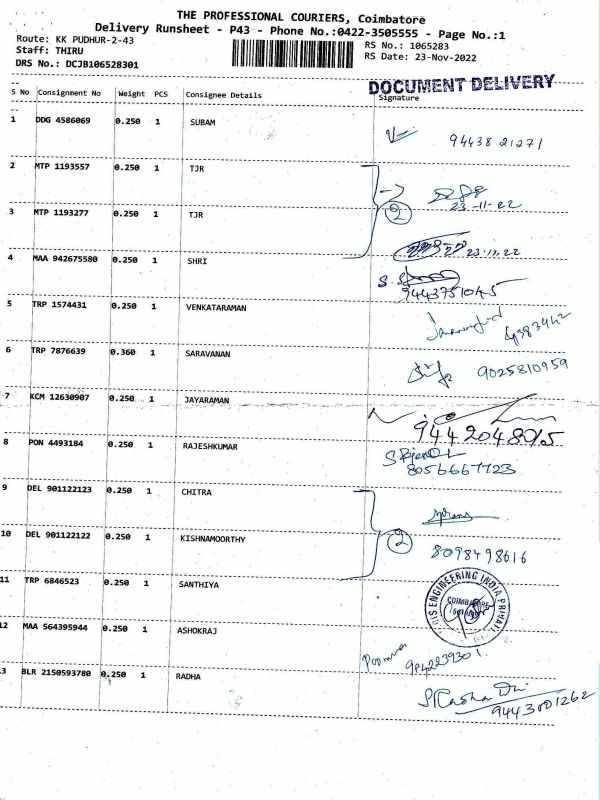 THE PROFESSIONAL COURIERS, Coimbatore
Delivery Runsheet - P43 - Phone No.:0422-3505555 - Page No.:1
Route: KK PUDHUR-2-43
RS No.: 1065283
Staff: THIRU
RS Date: 23-Nov-2022
DRS No.: DCJB106528301
DOCUMENT DELIVERY
S No Consignment No Weight PCS Consignee Details Signature
1 DDG 4586069 0.250 1 SUBAM
94438 21271
2 MTP 1193557 0.250 1 TJR
23-11-22
3 MTP 1193277 0.250 1 TJR
2
23.11.22
4 MAA 942675580 0.250 1 SHRI
9443751045
5 TRP 1574431 0.250 1 VENKATARAMAN
6 TRP 7876639 0.360 1 SARAVANAN
9025810959
7 KCM 12630907 0.250 1 JAYARAMAN
9442048015
8 PON 4493184 0.250 1 RAJESHKUMAR
8056667723
9 DEL 901122123 0.250 1 CHITRA
10 DEL 901122122 0.250 1 KISHNAMOORTHY
2
8098498616
11 TRP 6846523 0.250 1 SANTHIYA
ENGINEERING INDIA PRIVATE
COIMBATORE
12 MAA 564395944 0.250 1 ASHOKRAJ
9042239301
13 BLR 2150593780 0.250 1 RADHA
9443001262